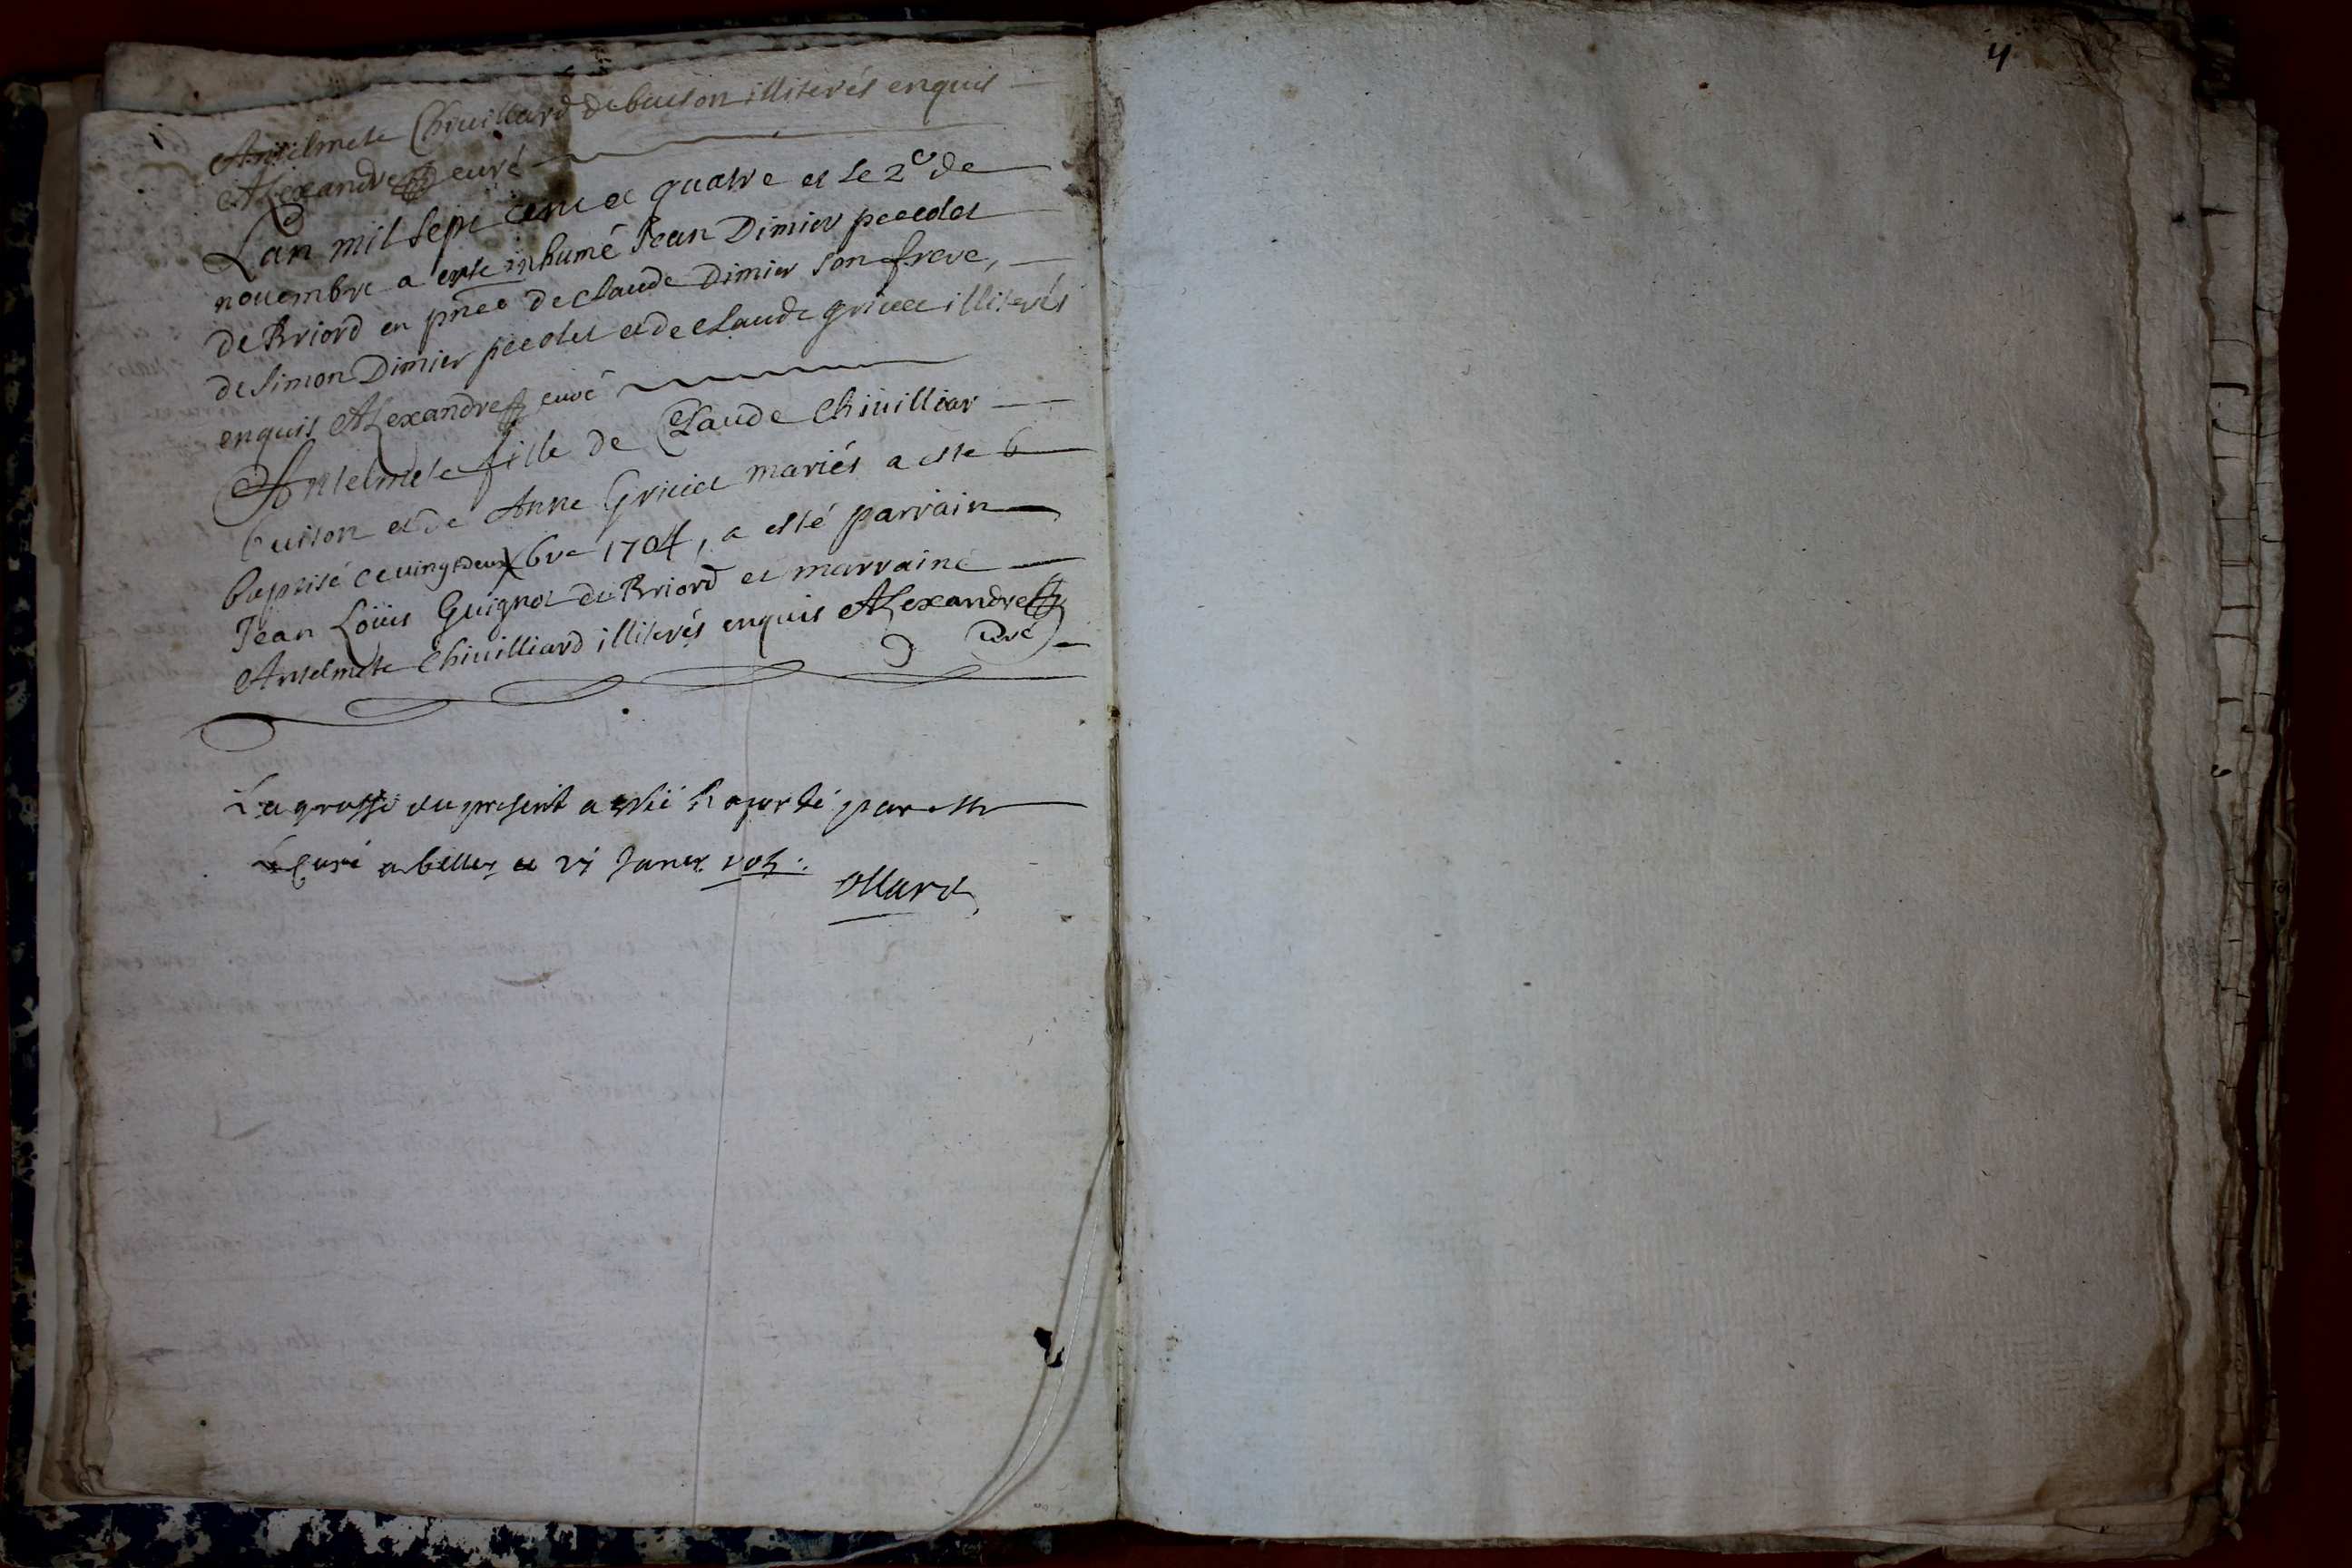 4
Anselmete Chiuillard de buison illiterés enquis
Alexandre curé
Lan mil sept cent et quatre et le 2e de
nouembre a este inhumé Jean Dimier peecdot
de Briord en pnce de Claude Dimier son frere,
de Simon Dimier peecdot et de Claude griuet illiterés
enquis Alexandre curé
Anselmete fille de Claude Chiuilliar
buison et de Anne Griuet mariés a este b
baptisé ce vingtdeux Xbre 1704, a esté parrain
Jean Loüis Guignot de Briord et marraine
Anselmete Chiuilliard illiterés enquis Alexandre
Curé
La grosse du present a esté raporté par Mr
le Curé a belley ce Janer